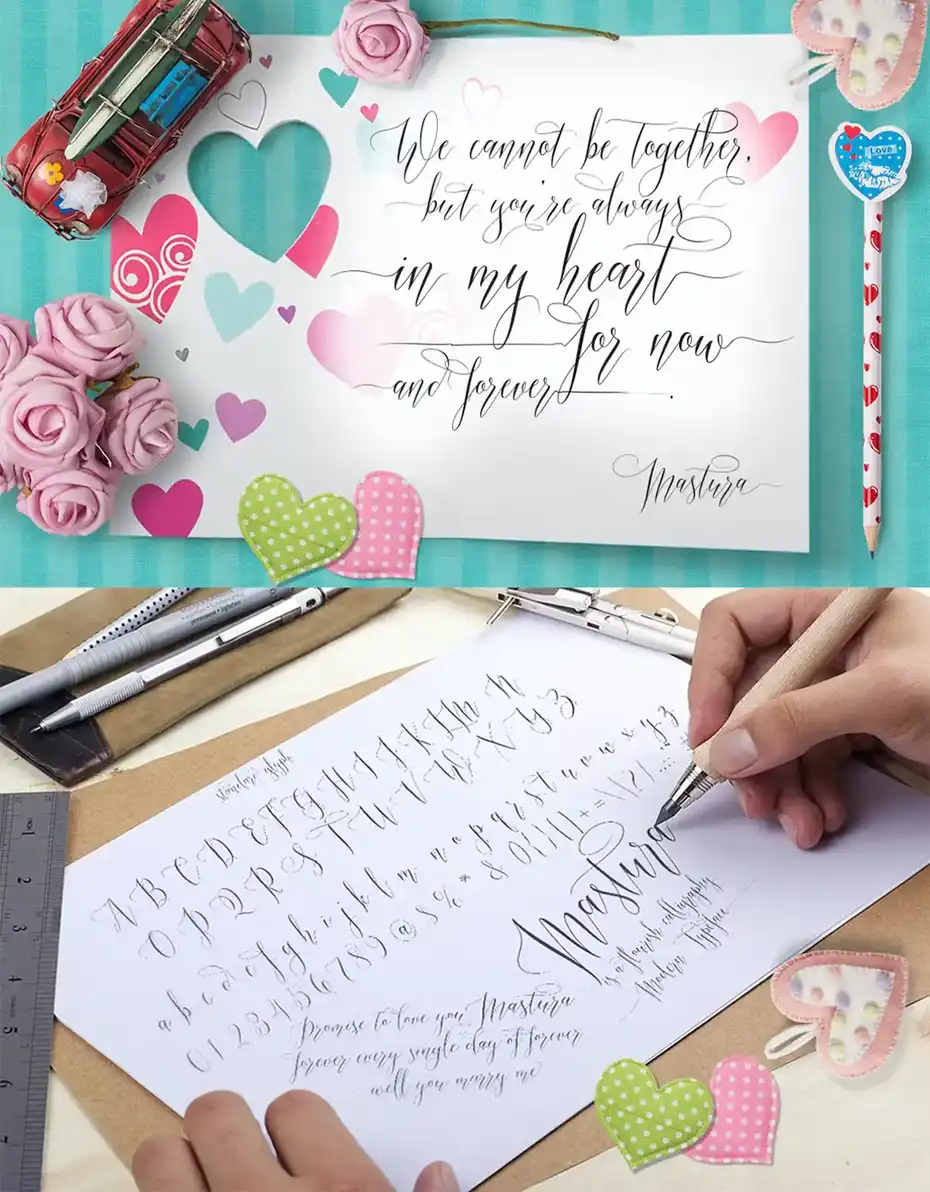 We cannot be Together,
but you're always
in my heart
for now
and forever.
Mastura
Love
standard glyph
A B C D E F G H I J K L M N
O P Q R S T U V W X Y Z
a b c d e f g h i j k l m n o p q r s t u v w x y z
0 1 2 3 4 5 6 7 8 9 @ $ % * &
Mastura
is a flourish calligraphy
Modern Typeface
Promise to love you Mastura
forever every single day of forever
well you marry me
1
2
3
4
5
6
7